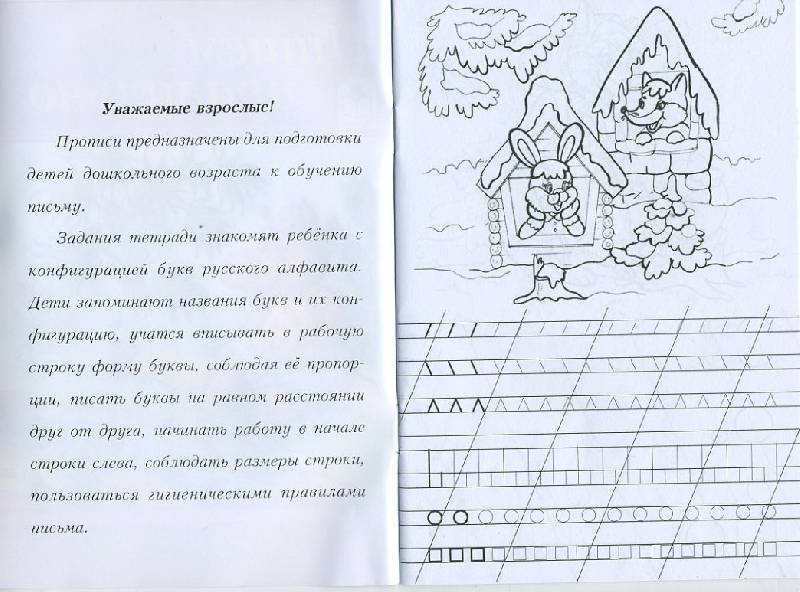 Уважаемые взрослые!
Прописи предназначены для подготовки
детей дошкольного возраста к обучению
письму.
Задания тетради знакомят ребёнка с
конфигурацией букв русского алфавита.
Дети запоминают названия букв и их кон-
фигурацию, учатся вписывать в рабочую
строку форму буквы, соблюдая её пропор-
ции, писать буквы на равном расстоянии
друг от друга, начинать работу в начале
строки слева, соблюдать размеры строки,
пользоваться гигиеническими правилами
письма.